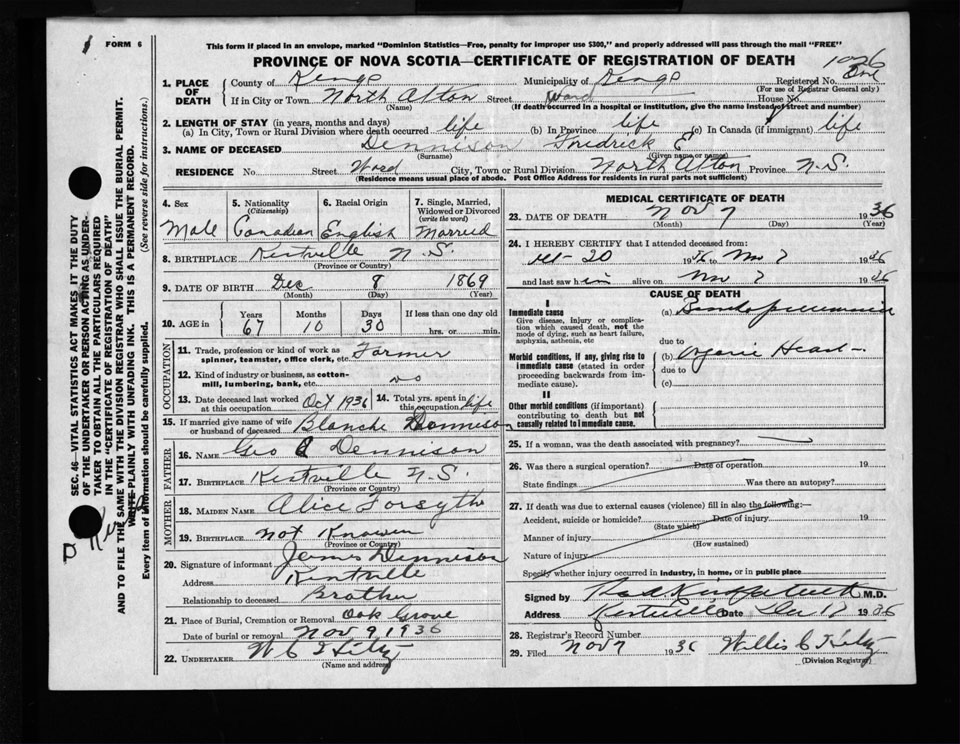 1
FORM 6
This form if placed in an envelope, marked "Dominion Statistics—Free, penalty for improper use $300," and properly addressed will pass through the mail "FREE"
PROVINCE OF NOVA SCOTIA—CERTIFICATE OF REGISTRATION OF DEATH
1. PLACE OF DEATH
County of Kings Municipality of Kings Registered No. 1026
(For use of Registrar General only)
If in City or Town North Alton Street Ward House No.
(Name) (If death occurred in a hospital or institution, give the name instead of street and number)
2. LENGTH OF STAY (in years, months and days)
(a) In City, Town or Rural Division where death occurred life (b) In Province life (c) In Canada (if immigrant) life
3. NAME OF DECEASED Dennison Fredrick E
(Surname) (Given name or names)
RESIDENCE No. Street Ward City, Town or Rural Division of North Alton Province N.S.
(Residence means usual place of abode. Post Office Address for residents in rural parts not sufficient)
4. Sex Male
5. Nationality (Citizenship) Canadian
6. Racial Origin English
7. Single, Married, Widowed or Divorced (write the word) Married
8. BIRTHPLACE Kentville N.S.
(Province or Country)
9. DATE OF BIRTH Dec 8 1869
(Month) (Day) (Year)
10. AGE in Years 67 Months 10 Days 30 If less than one day old hrs. or min.
OCCUPATION
11. Trade, profession or kind of work as spinner, teamster, office clerk, etc. Farmer
12. Kind of industry or business, as cotton-mill, lumbering, bank, etc. no
13. Date deceased last worked at this occupation Oct 1936
14. Total yrs. spent in this occupation life
15. If married give name of wife or husband of deceased Blanche Dennison
FATHER
16. NAME Geo C Dennison
17. BIRTHPLACE Kentville N.S.
(Province or Country)
MOTHER
18. MAIDEN NAME Alice Forsyth
19. BIRTHPLACE Not Known
(Province or Country)
20. Signature of informant James Dennison
Address Kentville
Relationship to deceased Brother
21. Place of Burial, Cremation or Removal Oak Grove
Date of burial or removal Nov 9, 1936
22. UNDERTAKER W C Hiltz
(Name and address)
MEDICAL CERTIFICATE OF DEATH
23. DATE OF DEATH Nov 7 1936
(Month) (Day) (Year)
24. I HEREBY CERTIFY that I attended deceased from:
20 19 to Nov 7 19
and last saw him alive on Nov 7 19
CAUSE OF DEATH
I
Immediate cause
Give disease, injury or complication which caused death, not the mode of dying, such as heart failure, asphyxia, asthenia, etc
(a)
due to
Morbid conditions, if any, giving rise to immediate cause (stated in order proceeding backwards from immediate cause).
(b) Organic Heart
due to
(c)
II
Other morbid conditions (if important) contributing to death but not causally related to immediate cause.
25. If a woman, was the death associated with pregnancy?
26. Was there a surgical operation? Date of operation 19
State findings Was there an autopsy?
27. If death was due to external causes (violence) fill in also the following:—
Accident, suicide or homicide? Date of injury 19
(State which)
Manner of injury
(How sustained)
Nature of injury
Specify whether injury occurred in industry, in home, or in public place
Signed by M.D.
Address Kentville Date Dec 17 1936
28. Registrar's Record Number
29. Filed Nov 7 1936 Willis C Hiltz
(Division Registrar)
SEC. 46 VITAL STATISTICS ACT MAKES IT THE DUTY
OF THE UNDERTAKER OR PERSON ACTING AS UNDER-
TAKER TO OBTAIN ALL THE PARTICULARS REQUIRED
IN THE "CERTIFICATE OF REGISTRATION OF DEATH"
AND TO FILE THE SAME WITH THE DIVISION REGISTRAR WHO SHALL ISSUE THE BURIAL PERMIT.
WRITE PLAINLY WITH UNFADING INK. THIS IS A PERMANENT RECORD.
Every item of information should be carefully supplied. (See reverse side for instructions.)